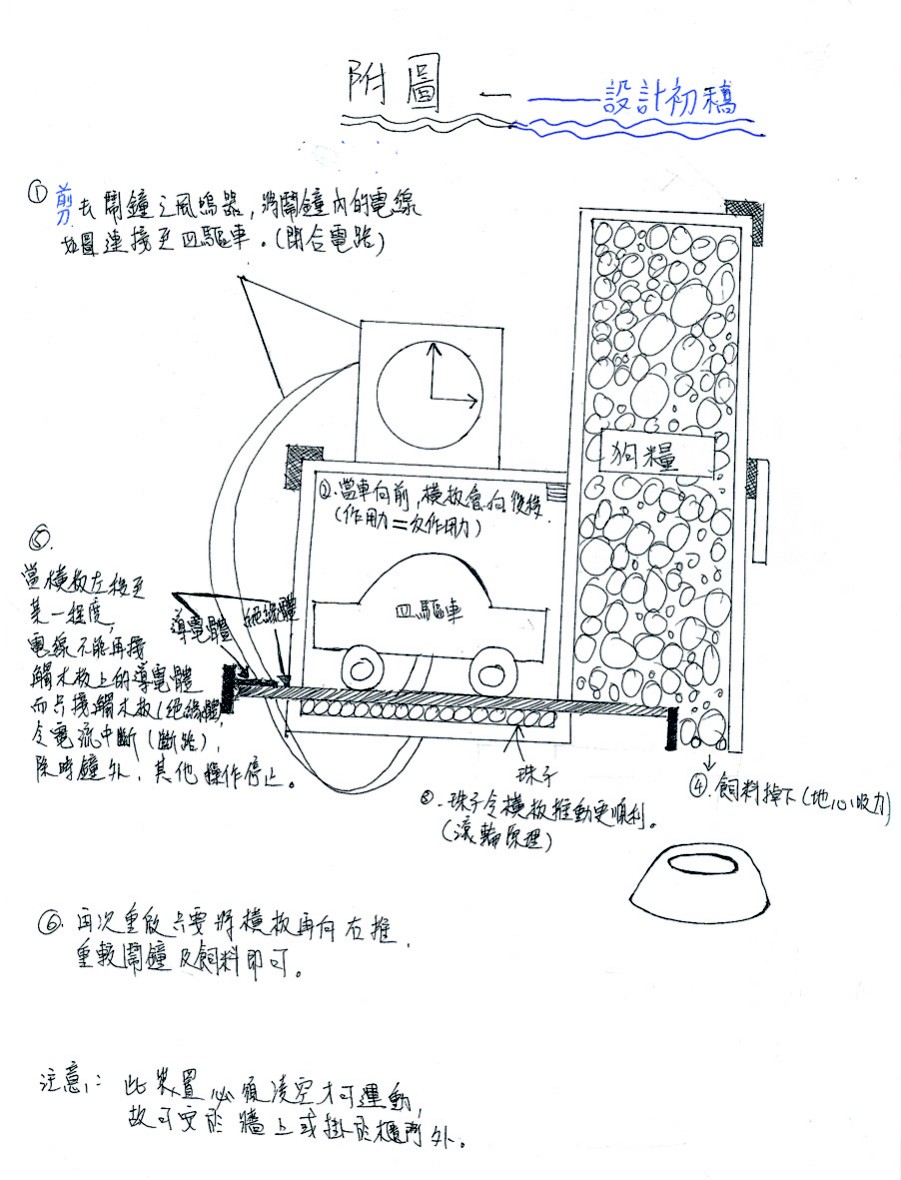 附圖一——設計初稿
①剪去鬧鐘之風鳴器，將鬧鐘內的電線
如圖連接至四驅車。(閉合電路)
狗糧
②.當車向前，橫板會向後移.
(作用力=反作用力)
四驅車
導電體
絕緣體
⑤.
當橫板左移至
某一程度，
電線不能再接
觸木板上的導電體
而只接觸木板(絕緣體)，
令電流中斷(斷路)，
除時鐘外，其他操作停止。
珠子
③.珠子令橫板推動更順利。
(滾輪原理)
④.飼料掉下(地心吸力)
⑥.再次重啟只要將橫板再向右推，
重較鬧鐘及飼料即可。
注意：此裝置必須凌空才可運動，
故可安於牆上或掛於櫃門外。